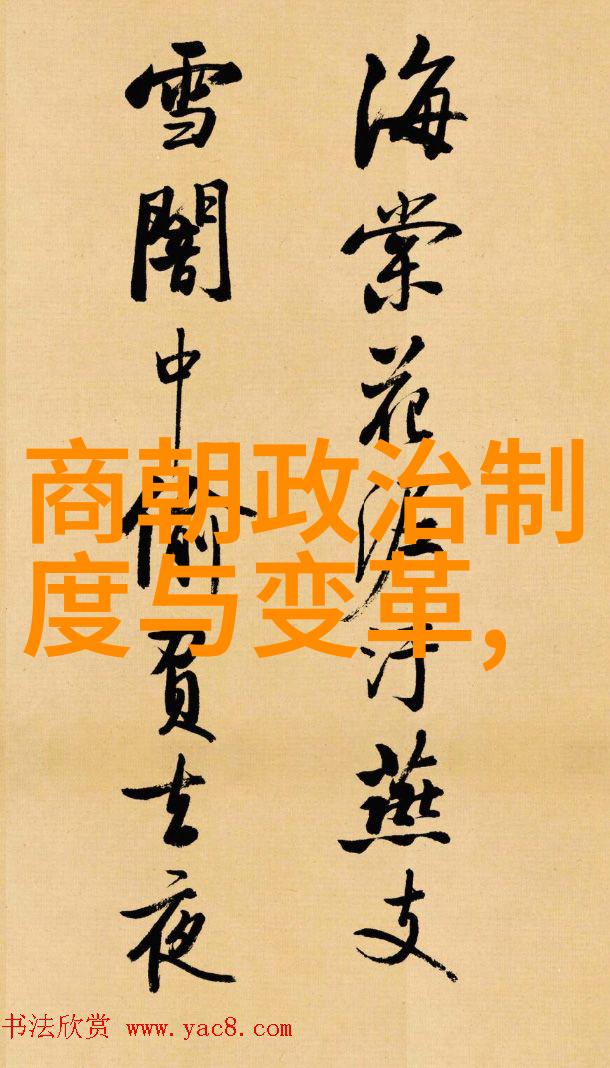 海棠花泥汙燕支
雪闇中偷負去夜
商朝政治制
度与变革,
书法欣赏 www.yac8.com